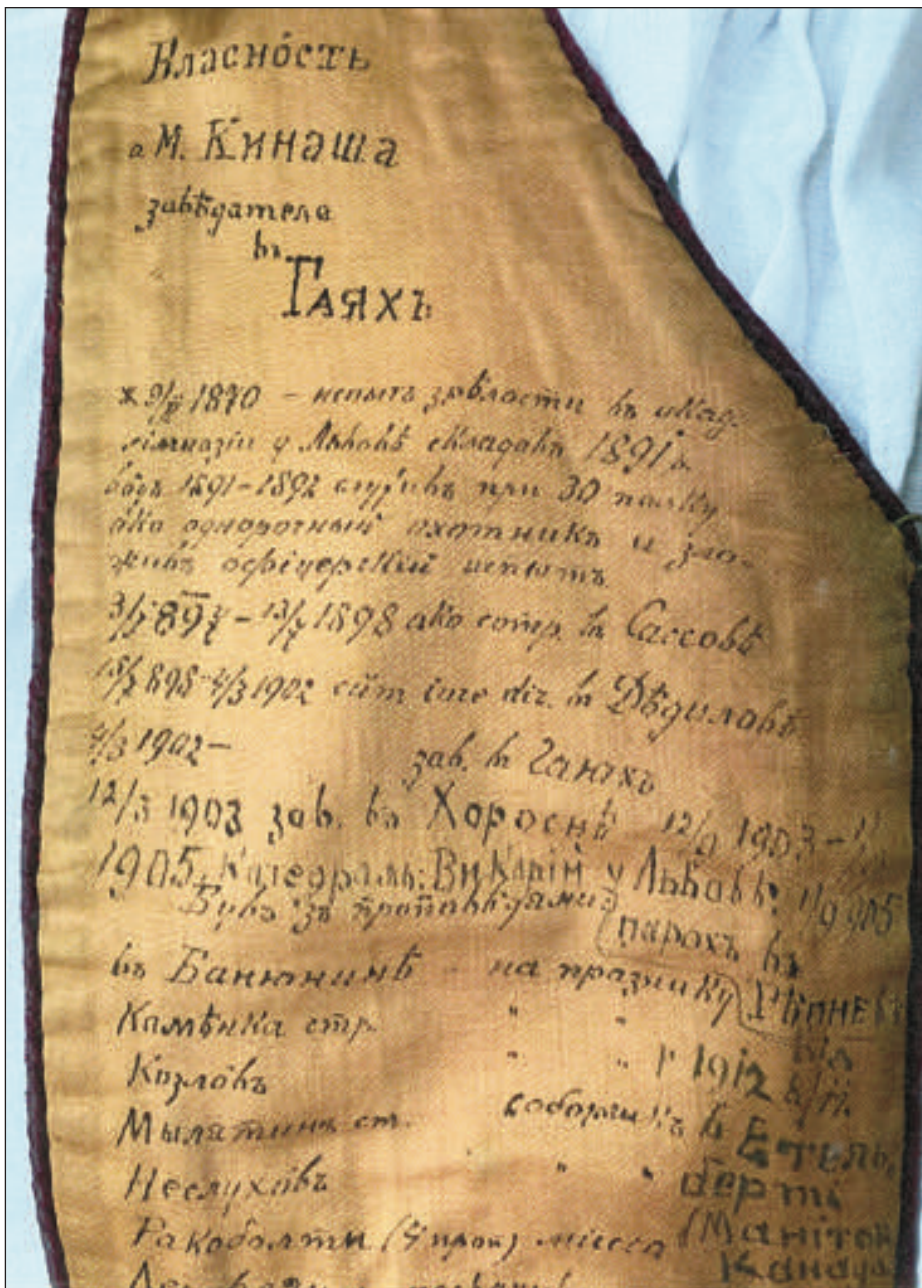 Власнôсть
о М. Кинаша
завѣдателя
въ
Гаяхъ
* 9/II 1870 – испытъ зрѣлости въ акад.
гімназіи у Львовѣ складавъ 1891 р.
вôдъ 1891–1892 служивъ при 30 полку
яко однорочный охотникъ и зло-
живъ офіцерскій испытъ
1898 яко сотр. въ Сассовѣ
4/3 1902 cum iure dir. въ Дѣдиловѣ
4/3 1902 – зав. въ Гаяхъ
12/3 1903 зав. въ Хороснѣ 12/9 1903 –
1905 Катедраль. Викарій у Львовѣ. 1/9 905
Бувъ зъ проповѣдями
парохъ въ
въ Банюнинѣ на празнику
Камѣнка стр. " "
Козлôвъ " " 1912
Мылятинъ ст. въ Етель,
Неслухôвъ " " берті
Ракоболты (4 проп) миссія (Манітоба
Канада